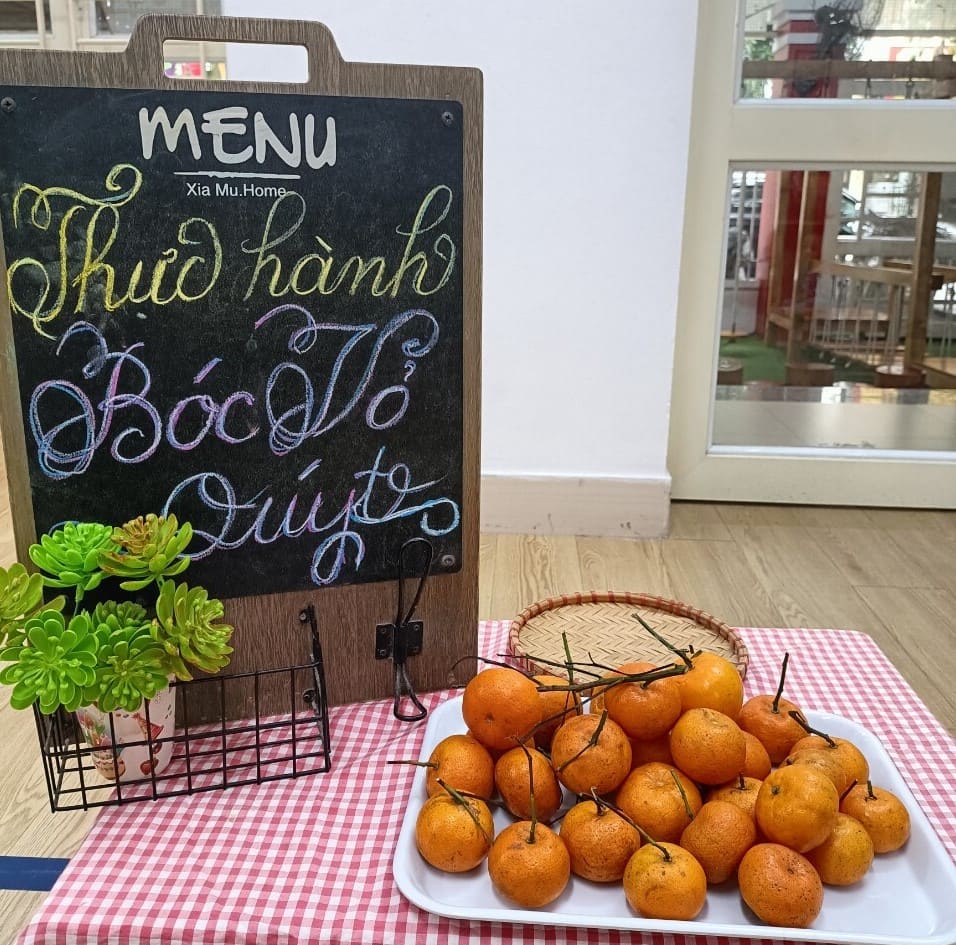 MENU
Xia Mu.Home
Thực hành
Bóc Vỏ
Quýt